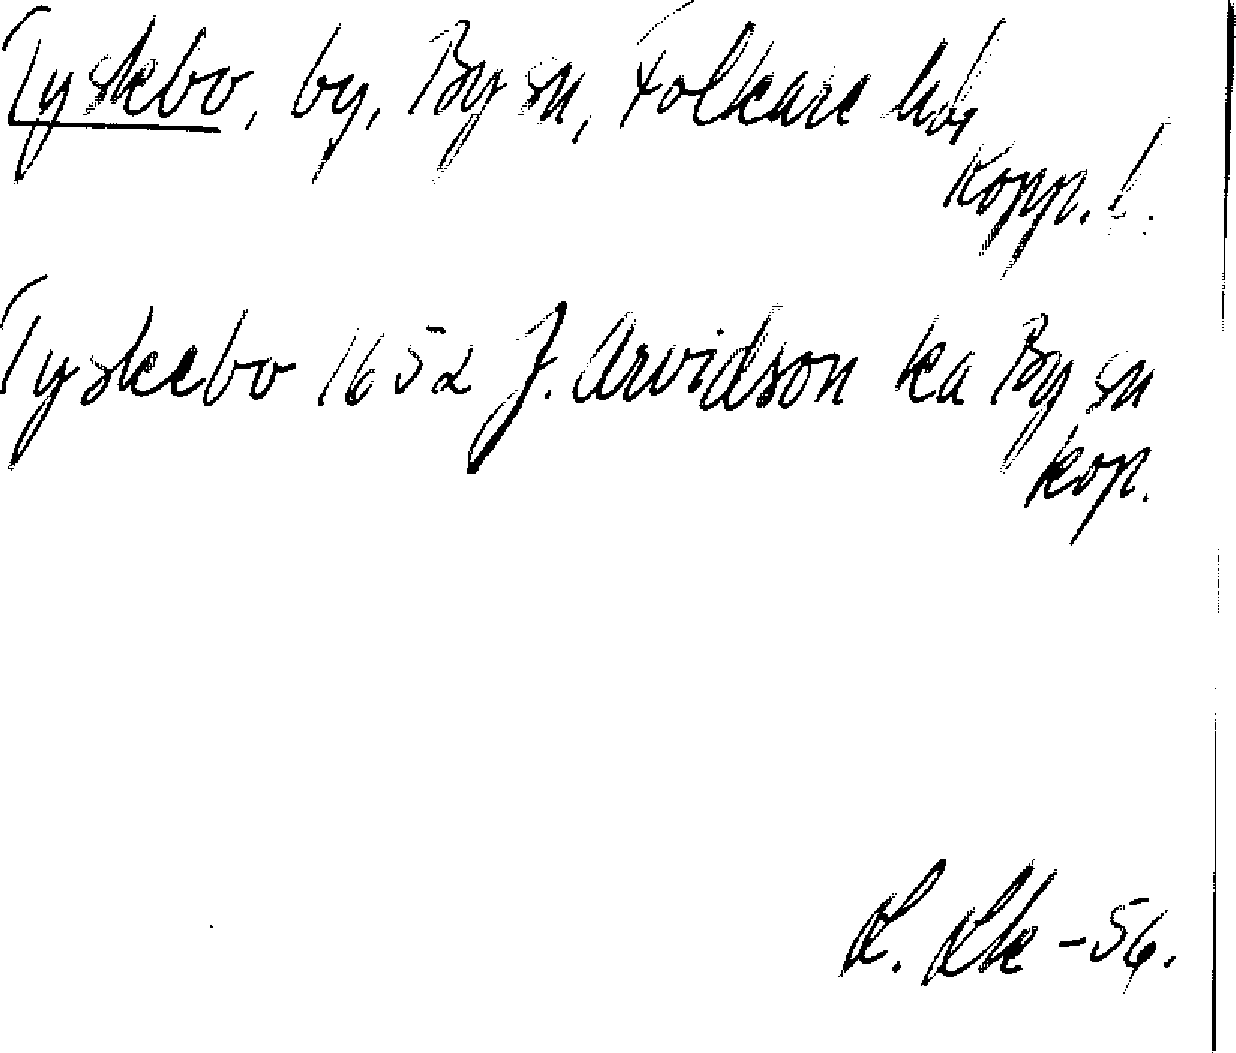 Tyskebo, by, By sn, Folkare hd,
Kopp. l.
Tyskebo 1652 J. Arvidson ka By sn
kop.
-56.